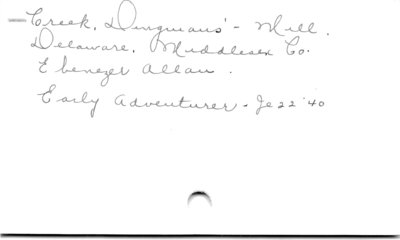 —Creek, Dingmans' - Mill.
Delaware. Middlesex Co.
Ebenezer Allan.
Early Adventurer - Je 22 '40